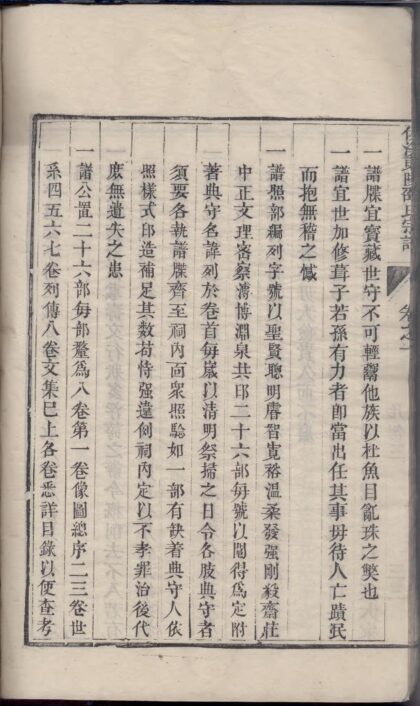 一譜牒宜寳藏世守不可輕鬻他族以杜魚目亂珠之獘也
一譜宜世加修葺子若孫有力者卽當出任其事毋待人亡蹟泯
而抱無稽之憾
一譜照部編列字號以聖賢聰明睿智寛裕温柔發强剛毅齋莊
中正文理密察溥博淵泉共印二十六部每號以鬮得爲定附
著典守名諱列於卷首每嵗以清明祭掃之日令各肢典守者
須要各執譜牒齊至祠内面衆照騐如一部有缺著典守人依
照樣式印造補足其数若恃强違例祠内定以不孝罪治後代
庶無遺失之患
一譜公置二十六部每部釐爲八卷第一卷像圖總序二三卷世
系四五六七卷列傳八卷文集已上各卷悉詳目錄以便查考